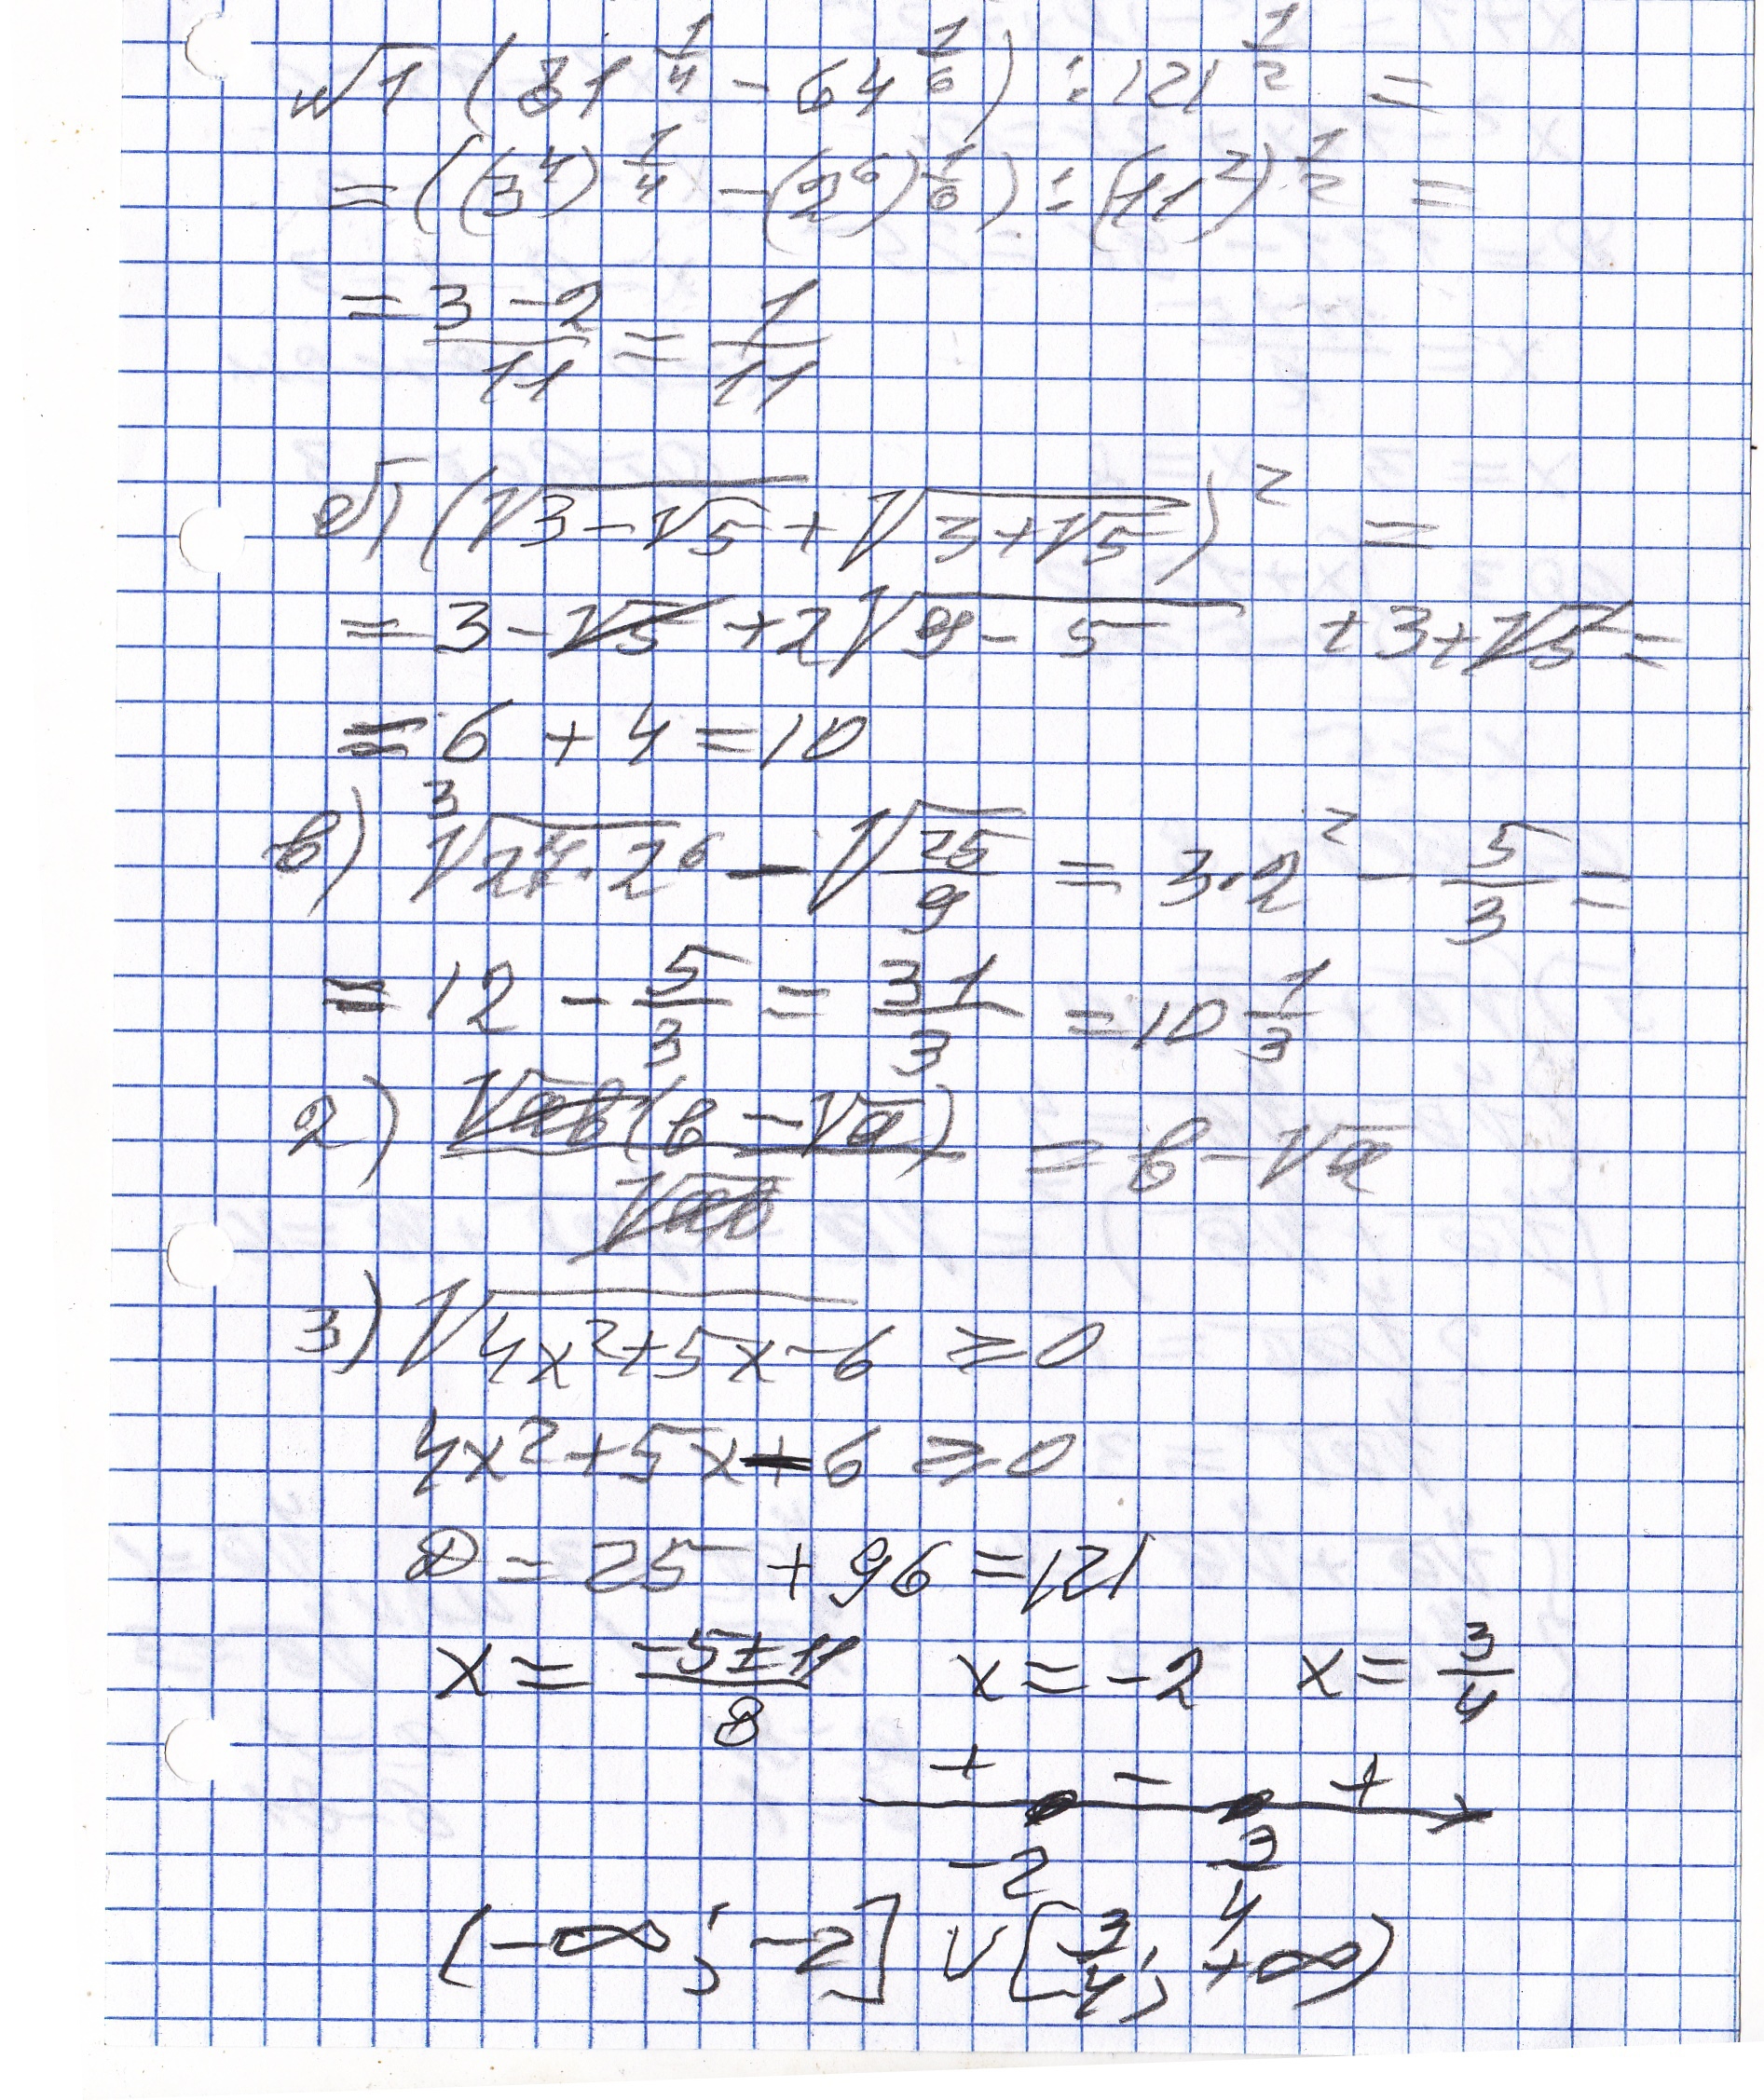 №1 (81^(1/4) - 64^(1/6)) : 121^(1/2) =
= ((3^4)^(1/4) - (2^6)^(1/6)) : (11^2)^(1/2) =
= (3-2)/11 = 1/11
б) (√(3-√5) + √(3+√5))^2 =
= 3 - √5 + 2√(9-5) + 3 + √5 =
= 6 + 4 = 10
в) ∛(27·2^6) - √(25/9) = 3·2^2 - 5/3 =
= 12 - 5/3 = 31/3 = 10 1/3
2) √ab(b - √a)/√ab = b - √a
3) √(4x²+5x-6) ≥ 0
4x²+5x-6 ≥ 0
D = 25 + 96 = 121
x = (-5±11)/8 x = -2 x = 3/4
+ - +
-2 3/4
(-∞; -2] ∪ [3/4; +∞)